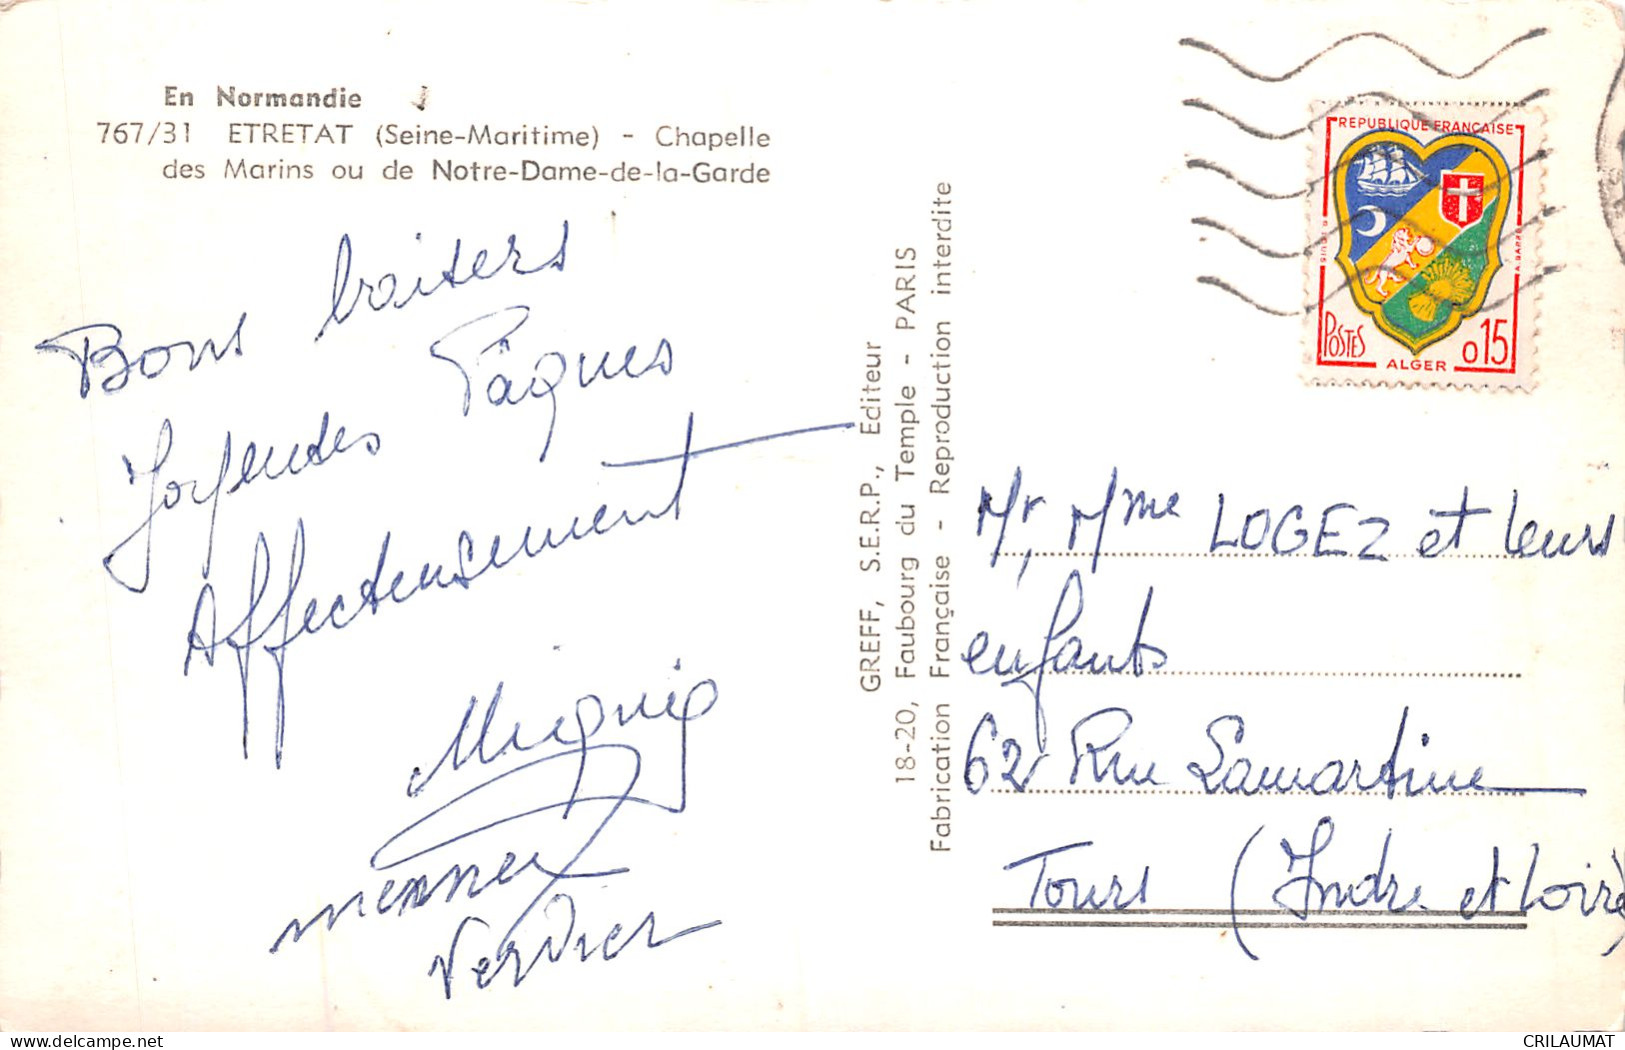 En Normandie
767/31 ETRETAT (Seine-Maritime) - Chapelle
des Marins ou de Notre-Dame-de-la-Garde
Bons baisers
Joyeuses Pâques
Affectueusement
Verdier
GREFF, S.E.R.P., Editeur
18-20, Faubourg du Temple - PARIS
Fabrication Française - Reproduction interdite
REPUBLIQUE FRANÇAISE
POSTES
ALGER
0,15
Mr, Mme LOGEZ et leurs
enfants
62 Rue Lamartine
Tours (Indre et Loire)
CRILAUMAT